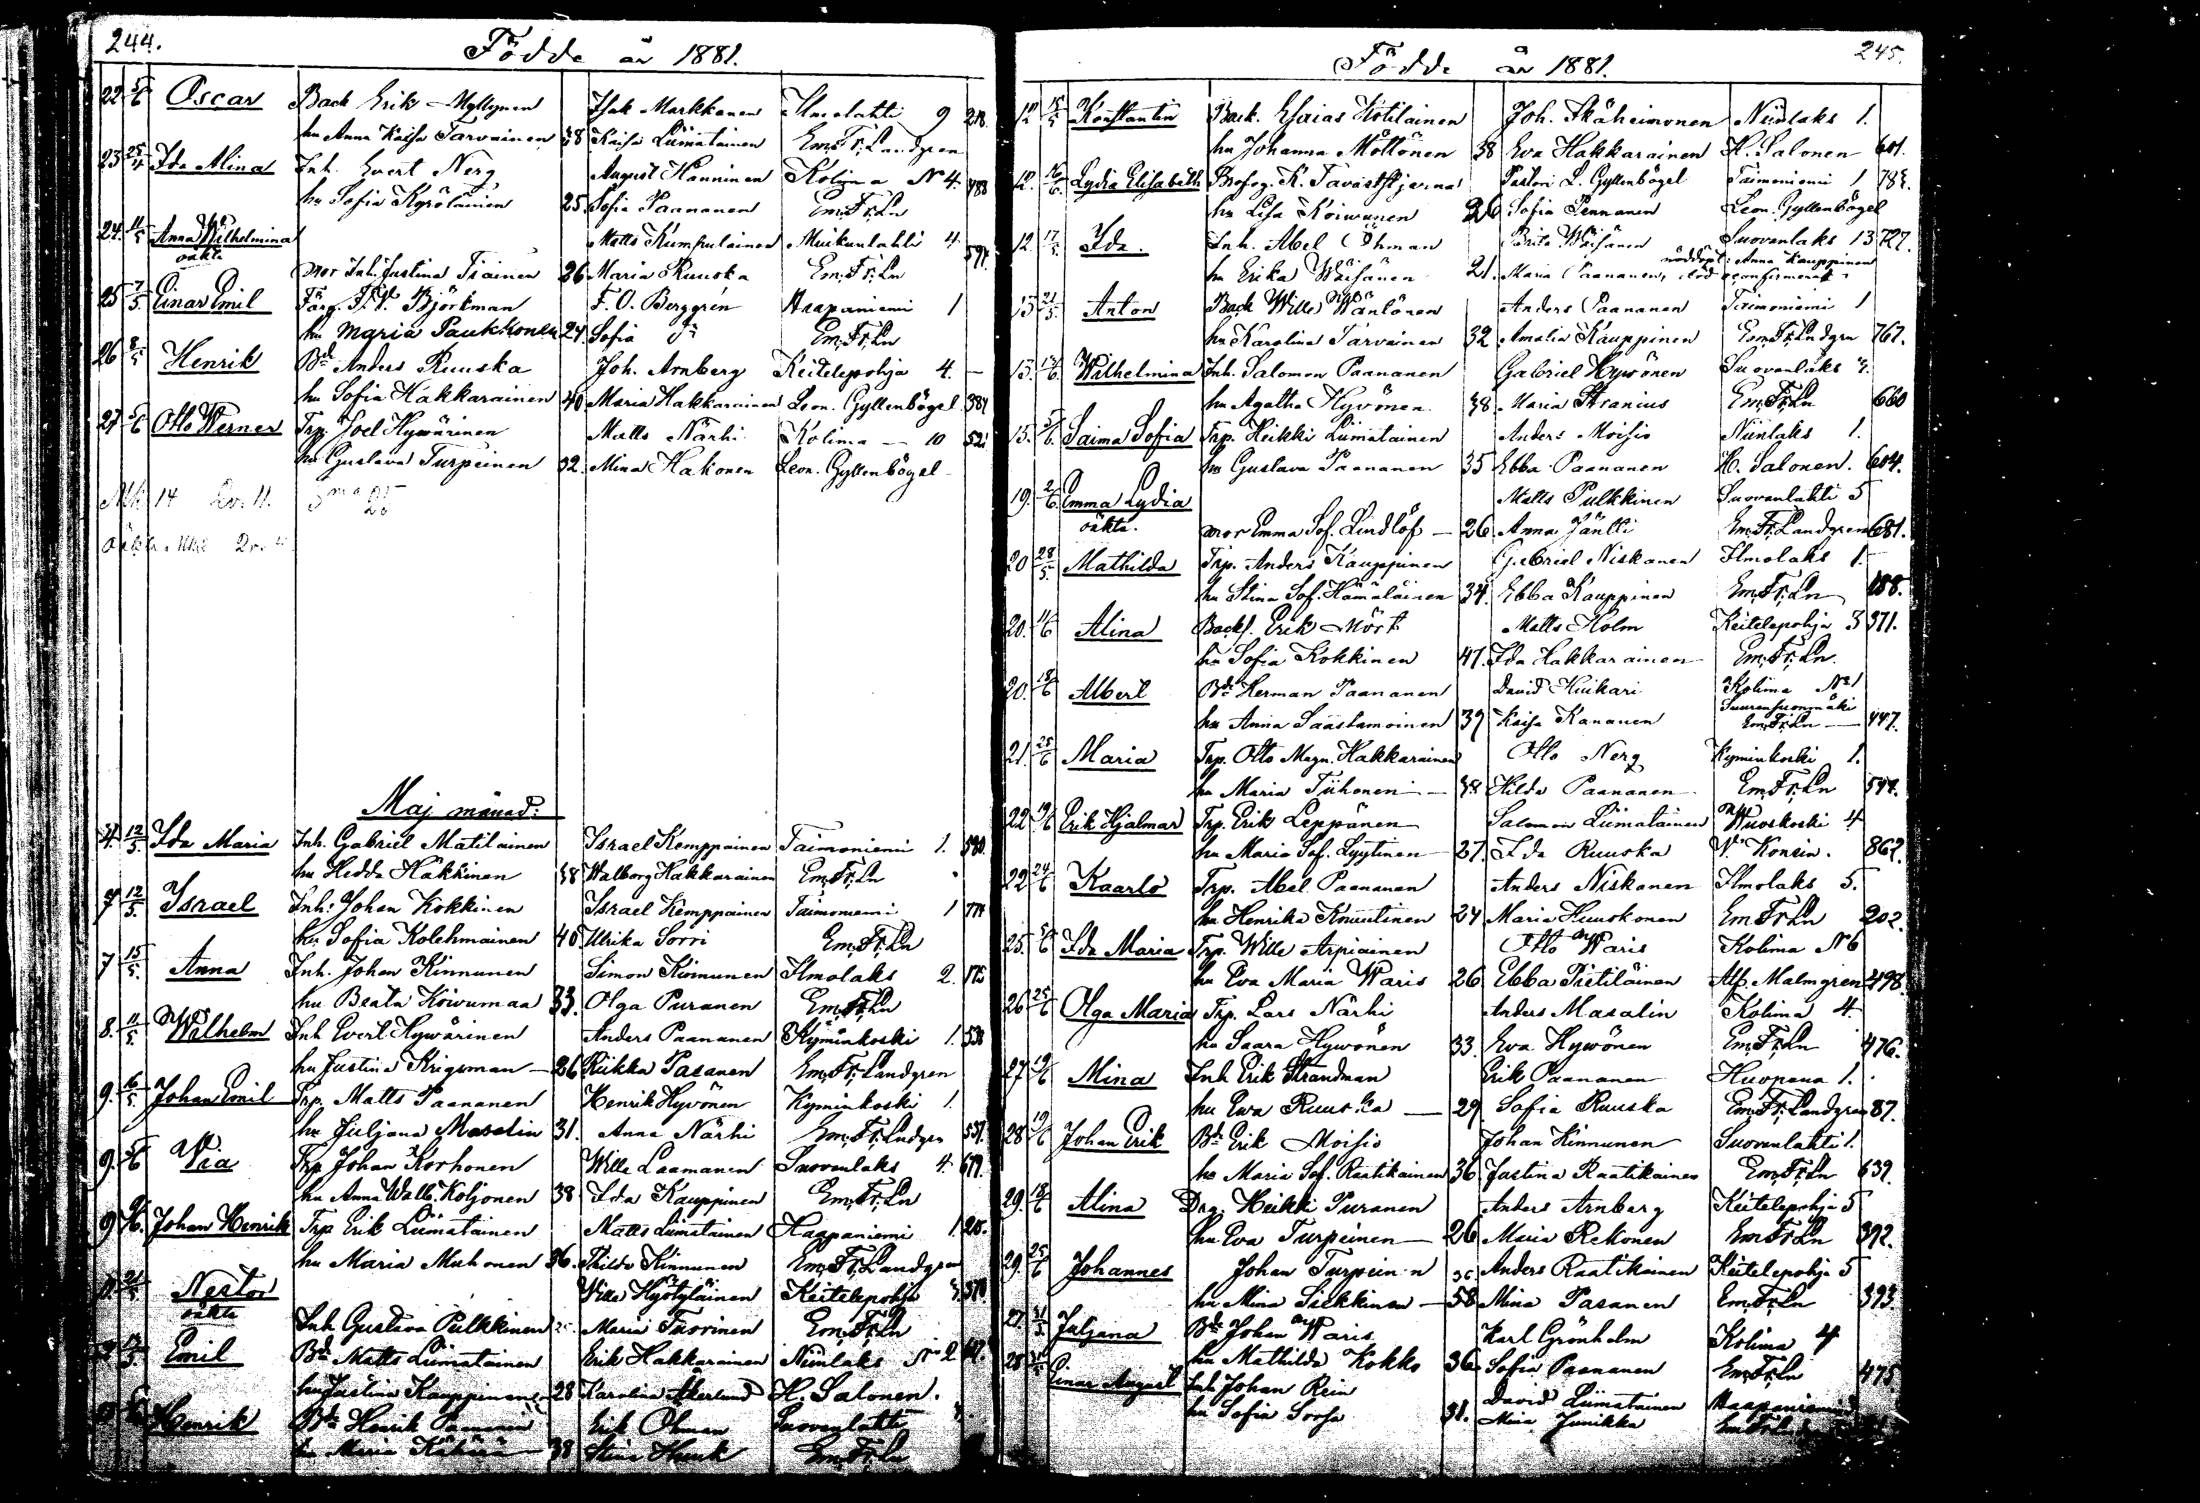 244.
Födde år 1881.
22 5/6 Oscar Back Erik Myllynen Isak Markkanen Ilmolahti 9 218
hu Anna Kaisa Tarvainen 38 Kaisa Liimatainen Em. Fr. Landgren
23 25/4 Ida Alina Inh. Evert Nerg August Hänninen Kolima N 4. 488
hu Sofia Kyröläinen 25. Sofia Paananen Em. Fr. Ln
24. 11/5 Anna Wilhelmina Matts Kumpulainen Muikunlahti 4 594
oäkta mor Inh. Justina Tiainen 26 Maria Ruuska Em. Fr. Ln
25 7/5 Einar Emil Färg. F. V. Björkman F. O. Berggrén Haapaniemi 1
hu Maria Paukkonen 24. Sofia Em. Fr. Ln
26 8/5 Henrik Bd. Anders Ruuska Joh. Arnberg Keitelepohja 4. —
hu Sofia Hakkarainen 40 Maria Hakkarainen Leon. Gyllenbögel 384
27 5/6 Otto Werner Trp. Joel Hywärinen Matts Närhi Kolima — 10 521
hu Gustava Turpeinen 32. Mina Hakonen Leon. Gyllenbögel
Mk 14 Qv. 11. Sma 25
oäkta Mk. Qv.
Maj månad:
4. 12/5 Ida Maria Inh. Gabriel Matilainen Israel Kemppainen Taimoniemi 1. 590.
hu Hedda Häkkinen 38 Walborg Hakkarainen Em. Fr. Ln
7 12/5 Israel Inh. Johan Kokkinen Israel Kemppainen Taimoniemi 1 774
hu Sofia Kolehmainen 40 Ulrika Sorri Em. Fr. Ln
7 15/5. Anna Inh. Johan Kinnunen Simon Kinnunen Ilmolaks 2. 175
hu Beata Koivumaa 33. Olga Puranen Em. Fr. Ln
8. 11/5 Wilhelm Inh Evert Hywärinen Anders Paananen Kyminkoski 1. 538
hu Justina Krigsman — 26 Riikka Pasanen Em. Fr. Landgren
9. 16/5. Johan Emil Trp. Matts Paananen Henrik Hyvönen Kyminkoski 1.
hu Juljana Masalin 31. Anna Närhi Em. Fr. Lndgren 537.
9. 5/6 Via Trp Johan Korhonen Wille Laamanen Suovanlaks 4. 679.
hu Anna Walb. Koljonen 38 Ida Kauppinen Em. Fr. Ln
9 Johan Henrik Trp Erik Liimatainen Matts Liimatainen Haapaniemi 1.
hu Maria Muhonen 36. Hilda Kinnunen Em. Fr. Landgren
Nestor Wille Hyötyläinen Keitelepohja 378.
oäkta Inh. Gustava Pulkkinen Maria Tuorinen Em. Fr. Ln
Emil Bd. Matts Liimatainen Erik Hakkarainen Niinlaks No 2
hu Justina Kauppinen — 28 Karolina Åkerlund H. Salonen.
Henrik Bd. Henrik Erik Suovanlahti
hu Maria 38 Stina Em. Fr. Ln
245.
Födde år 1881.
12 15/5 Konstantin Back. Esaias Kotilainen Joh. Ikäheimonen Niinlaks 1.
hu Johanna Möttönen 38 Eva Hakkarainen H. Salonen 601.
12. 16/6. Lydia Elisabeth K. Tavaststjerna Pastori L. Gyllenbögel Taimoniemi 1 783.
hu Lisa Koiwunen 26 Sofia Pennanen Leon. Gyllenbögel
12. 17/5. Ida. Inh. Abel Öhman Brita Wäisänen Suovanlaks 13 727.
hu Erika Wäisänen 21. Maria Paananen, nöddöpt: Anna Kauppinen död oconfirmerat
13 21/5. Anton Back Wille Wänlönen Anders Paananen Taimoniemi 1
hu Karolina Tarvainen 32 Amalia Kauppinen Em. Fr. Lndgrn 767.
13. 12/6. Wilhelmina Inh. Salomon Paananen Gabriel Hywönen Suovanlaks
hu Agatha Hyvönen. 38 Maria Stranius Em. Fr. Ln 660
15. 5/6. Saima Sofia Trp. Heikki Liimatainen Anders Moisio Niinlaks 1.
hu Gustava Paananen 35 Ebba Paananen H. Salonen. 604.
19. 2/6. Emma Lydia Matts Pulkkinen Suovanlahti 5
oäkta. mor Emma Sof. Lindlöf — 26 Anna Jäntti Em. Fr. Landgren 681.
20 28/5. Mathilda Trp. Anders Kauppinen Gabriel Niskanen Ilmolaks 1.
hu Stina Sof. Hämäläinen 34. Ebba Kauppinen Em. Fr. Ln 188.
20. 11/6 Alina Backf. Erik Mört Matts Holm Keitelepohja 3 371.
hu Sofia Kokkinen 41. Ida Hakkarainen Em. Fr. Ln.
20. 18/6 Albert Bd. Herman Paananen David Huikari Kolima No 1
hu Anna Saastamoinen 39 Kaisa Kananen Suurensuonmäki Em. Fr. Ln — 447.
21. 25/6 Maria Trp. Otto Magn. Hakkarainen Otto Nerg Kyminkoski 1.
hu Maria Tiihonen — 38 Hilda Paananen Em. Fr. Ln 544.
22 19/6 Erik Hjalmar Trp. Erik Leppänen Salomon Liimatainen Wuoskoski 4
hu Maria Sof. Lyytinen 27. Ida Ruuska V. Konsin. 867.
22 24/6 Kaarlo Trp. Abel Paananen Anders Niskanen Ilmolaks 5.
hu Henrika Knuutinen 24 Maria Huuskonen Em Fr Ln 202.
25. 5/6 Ida Maria Trp. Wille Arpiainen Otto Waris Kolima N 6
hu Eva Maria Waris 26 Ebba Pietiläinen Alf. Malmgren 498.
26 25/6 Olga Maria Trp. Lars Närhi Anders Masalin Kolima 4
hu Saara Hywönen 33. Eva Hywönen Em. Fr. Ln 476.
27 19/6 Mina Inh Erik Strandman Erik Paananen Huopana 1.
hu Ewa Ruuska — 29. Sofia Ruuska Em. Fr. Landgren 87.
28 19/6 Johan Erik Bd. Erik Moisio Johan Kinnunen Suovanlahti 1.
hu Maria Sof. Raatikainen 36 Justina Raatikainen Em. Fr. Ln 639.
29. 18/6 Alina Drg. Heikki Puranen Anders Arnberg Keitelepohja 5
hu Eva Turpeinen — 26 Maria Rekonen Em Fr Ln 392.
29. 25/6 Johannes Johan Turpeinen 36 Anders Raatikainen Keitelepohja 5
hu Mina Siekkinen — 58 Mina Pasanen Em. Fr. Ln 393.
27. 31/5. Juljana Bd. Johan Waris Karl Grönholm Kolima 4
hu Mathilda Kokko 36 Sofia Paananen Em. Fr. Ln 475.
28 Einar August Inh Johan Rein David Liimatainen Haapaniemi
hu Sofia Sorsa 31. Miia Junikka Em Fr L